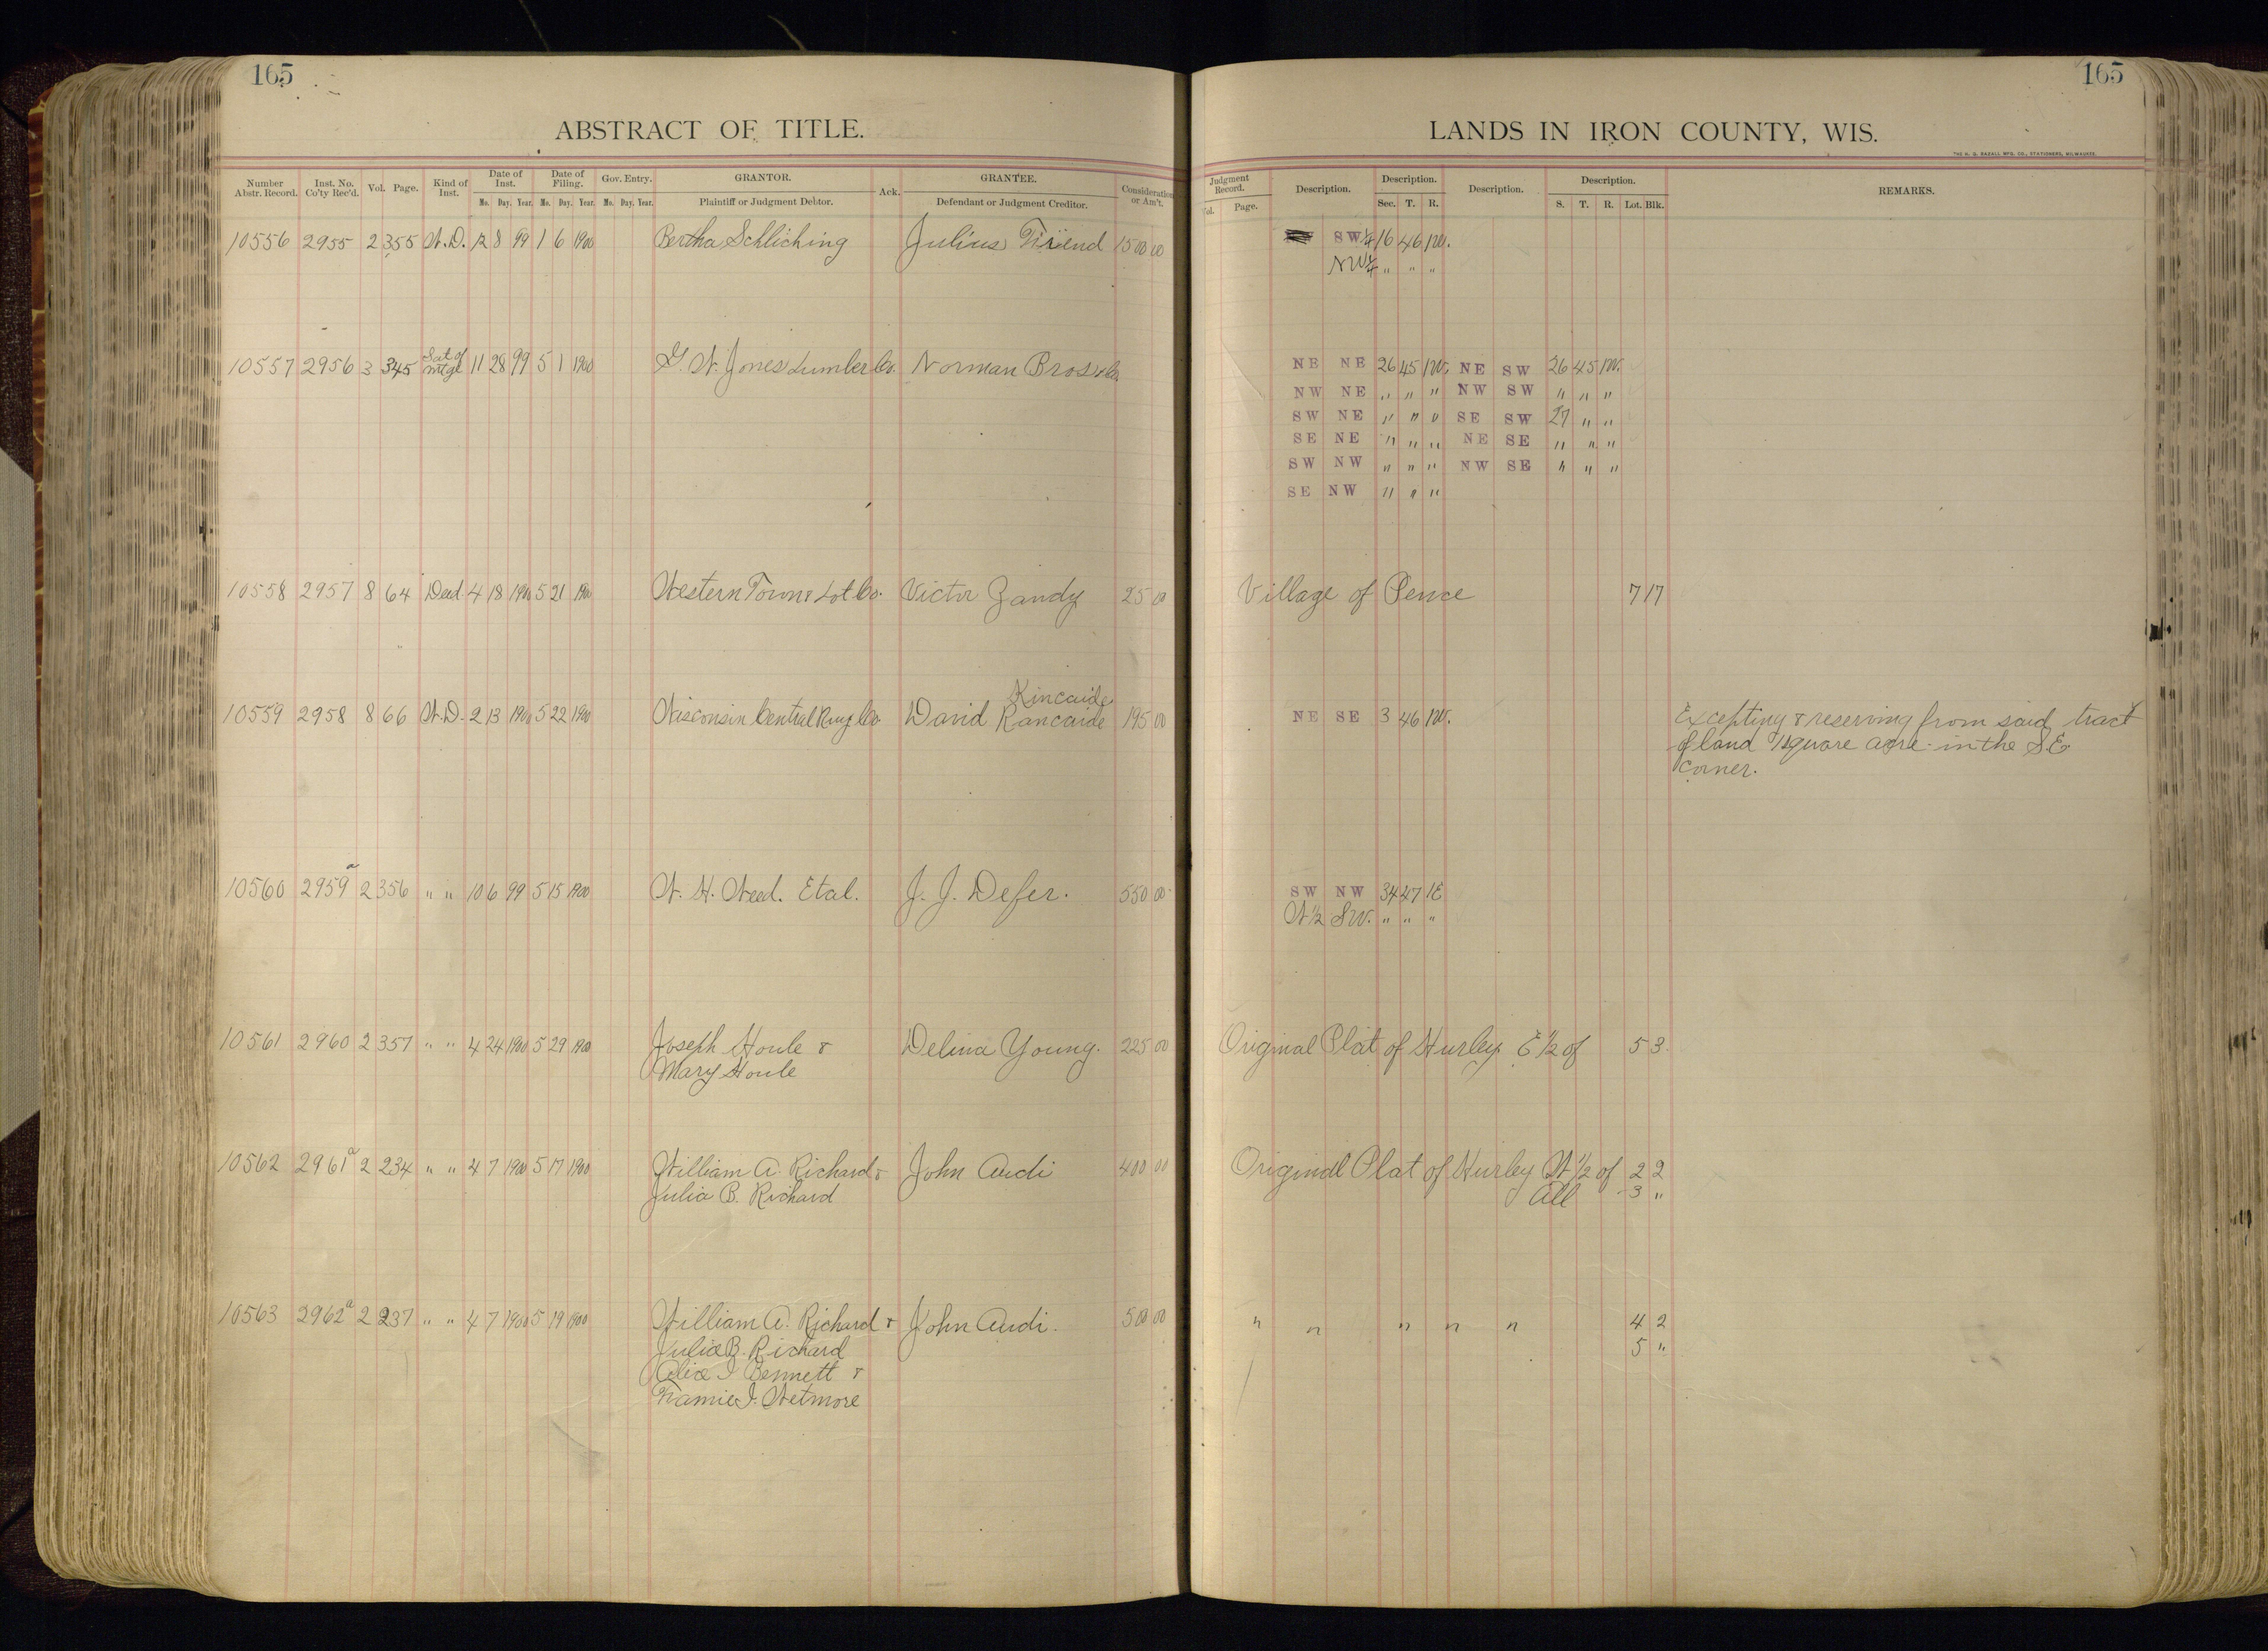 165
165
ABSTRACT OF TITLE.
LANDS IN IRON COUNTY, WIS.
THE H. G. RAZALL MFG. CO., STATIONERS, MILWAUKEE.
Number Abstr. Record. Inst. No. Co'ty Rec'd. Vol. Page. Kind of Inst. Date of Inst. Mo. Day. Year. Date of Filing. Mo. Day. Year. Gov. Entry. Mo. Day. Year. GRANTOR. Plaintiff or Judgment Debtor. Ack. GRANTEE. Defendant or Judgment Creditor. Consideration or Am't.
Judgment Record. Vol. Page. Description. Description. Sec. T. R. Description. Description. S. T. R. Lot. Blk. REMARKS.
10556 2955 2 355 W.D. 12 8 99 1 6 1900 Bertha Schliching Julius Friend 1500 00 SW 1/4 16 46 1W.
NW 1/4 " " "
10557 2956 3 345 Sat of mtge 11 28 99 5 1 1900 G. W. Jones Lumber Co. Norman Bros & Co. NE NE 26 45 1W. NE SW 26 45 1W.
NW NE " " " NW SW " " "
SW NE " " " SE SW 27 " "
SE NE " " " NE SE " " "
SW NW " " " NW SE " " "
SE NW " " "
10558 2957 8 64 Deed 4 18 1900 5 21 1900 Western Town & Lot Co. Victor Zandy 25 00 Village of Pence 7 17
Kincaide
10559 2958 8 66 W.D. 2 13 1900 5 22 1900 Wisconsin Central Rwy Co. David Kancaide 195 00 NE SE 3 46 1W. Excepting & reserving from said tract
of land 1 square acre in the S.E.
corner.
10560 2959a 2 356 " " 10 6 99 5 15 1900 W. H. Weed. Etal. J. J. Defer. 550 00 SW NW 34 47 1E
W 1/2 SW. " " "
10561 2960 2 357 " " 4 24 1900 5 29 1900 Joseph Houle & Delina Young. 225 00 Original Plat of Hurley E 1/2 of 5 3
Mary Houle
10562 2961a 2 234 " " 4 7 1900 5 17 1900 William A. Richard & John Audi 400 00 Original Plat of Hurley W 1/2 of 2 2
Julia B. Richard All 3 "
10563 2962a 2 237 " " 4 7 1900 5 19 1900 William A. Richard & John Audi. 500 00 " " " " " 4 2
Julia B. Richard 5 "
I Bennett &
I. Wetmore